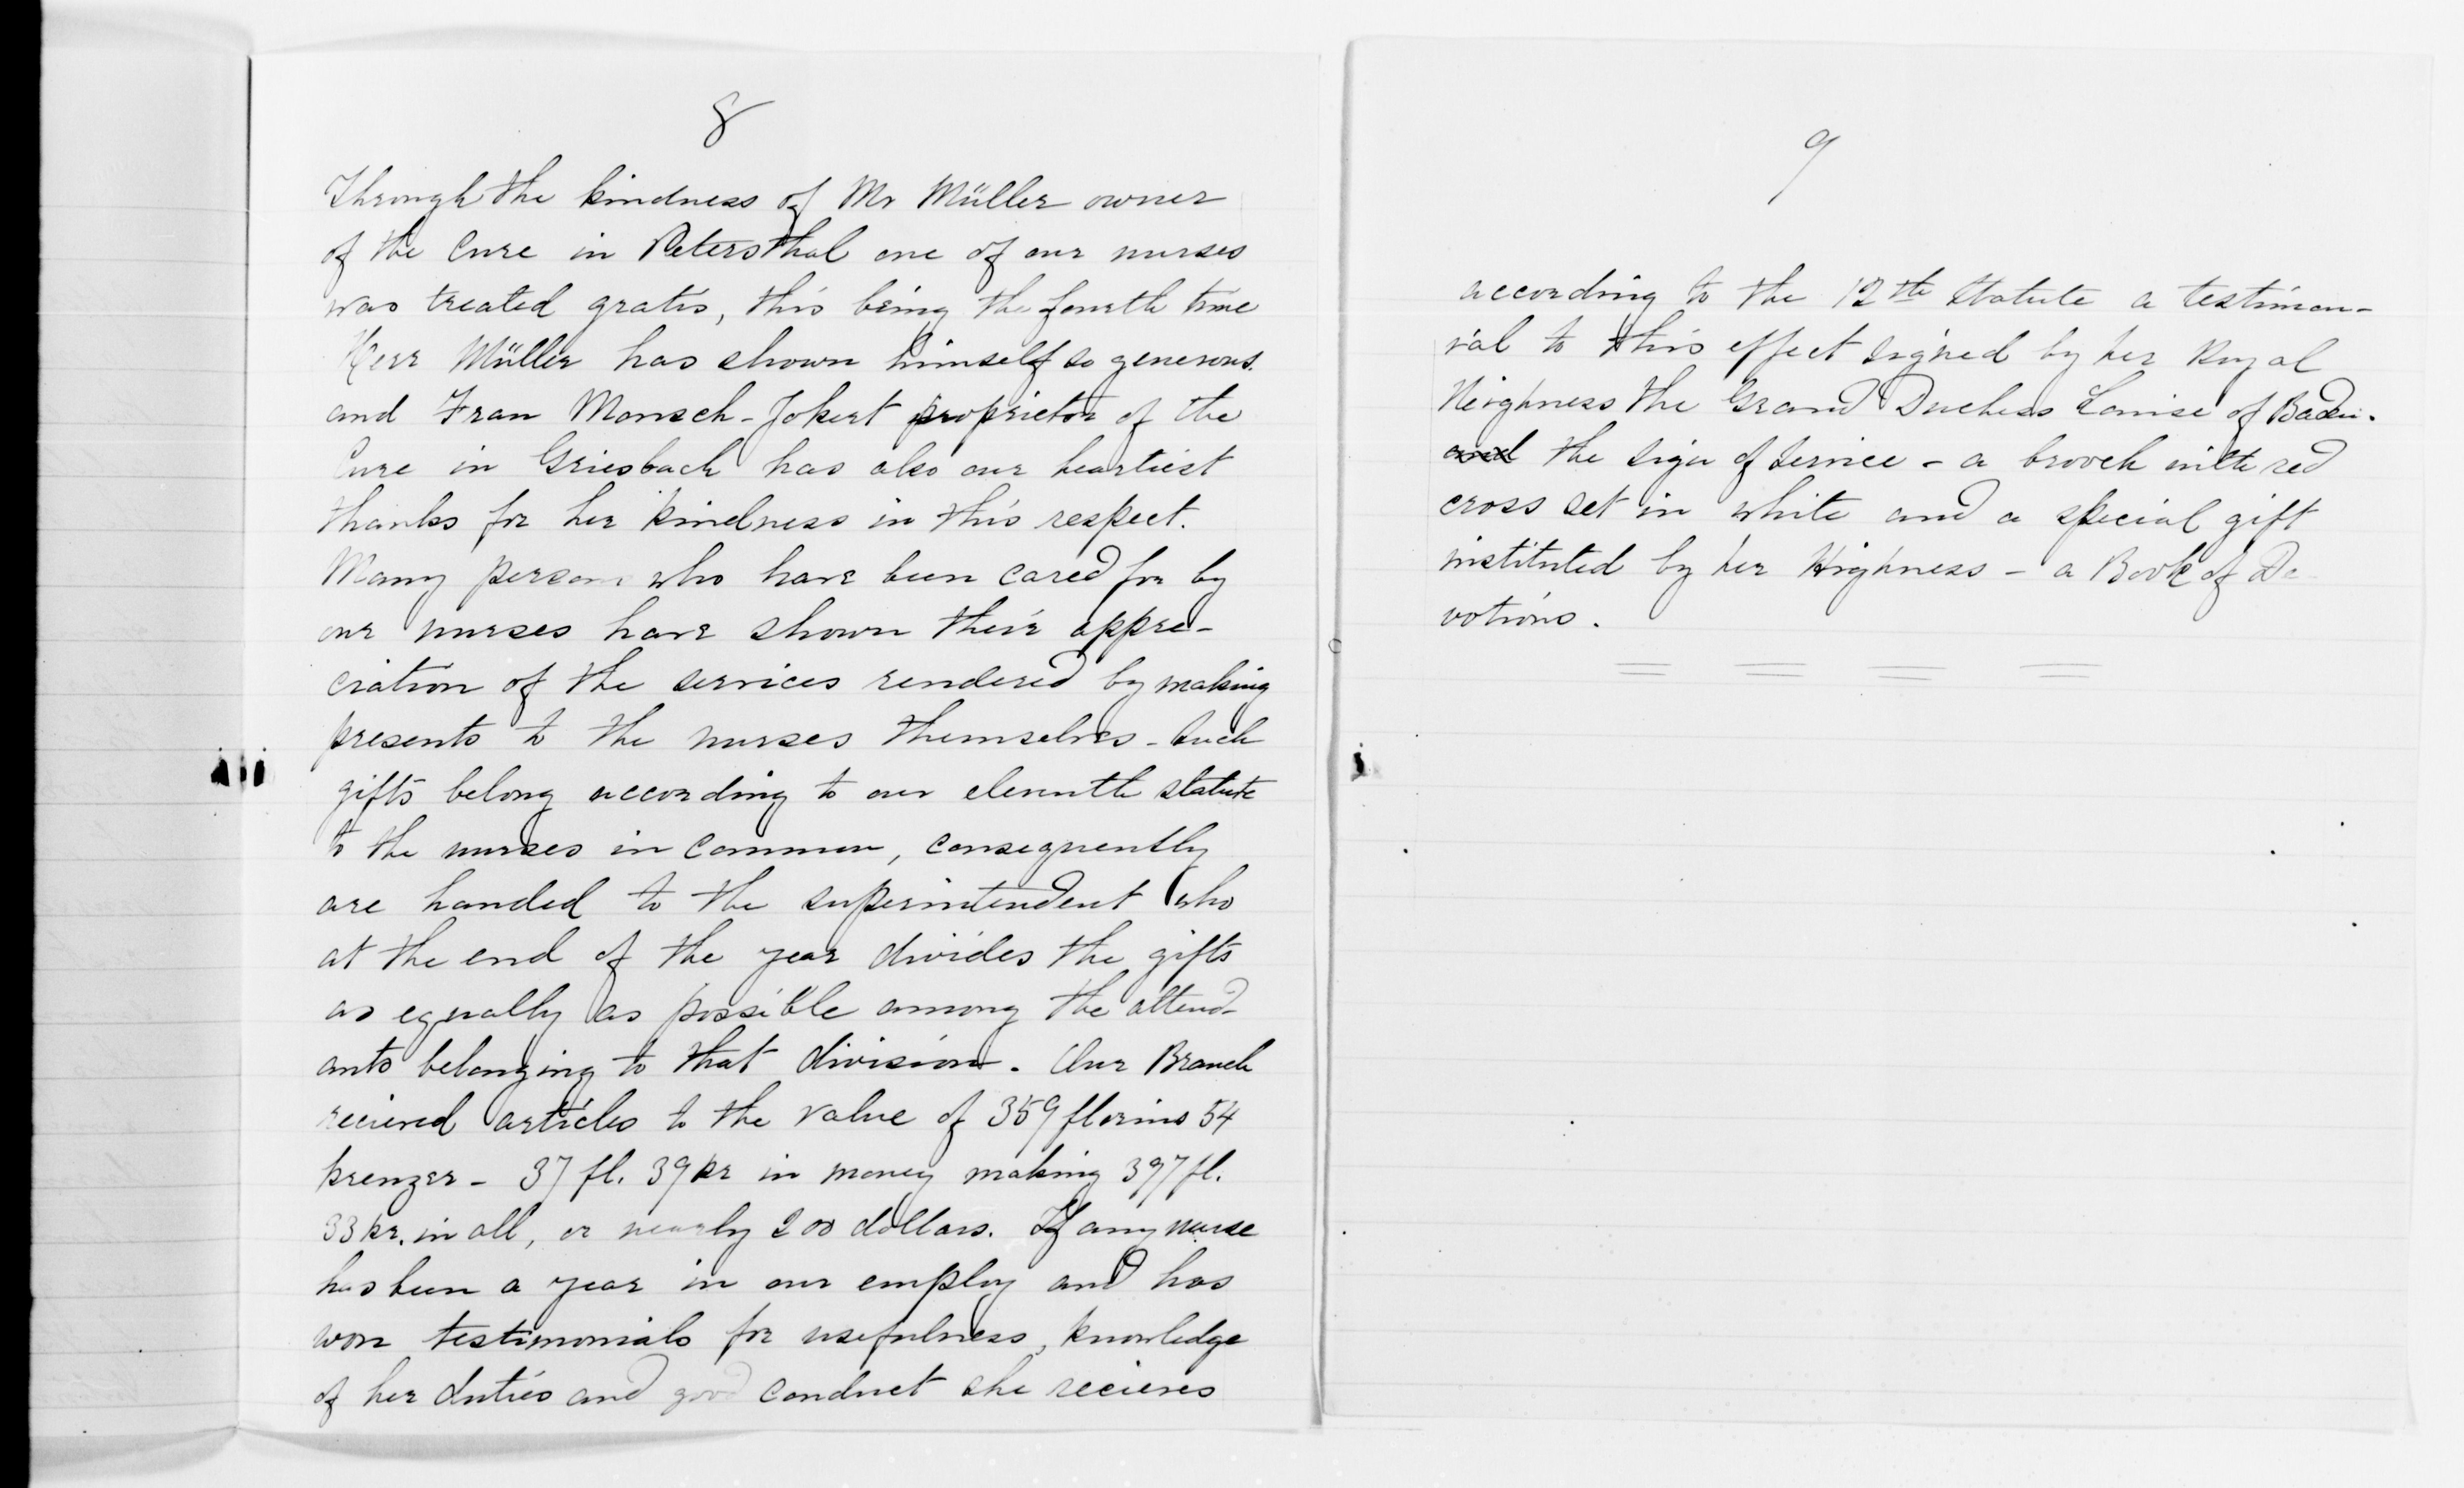 8
Through the kindness of Mr Müller owner
of the Cure in Petersthal one of our nurses
was treated gratis, this being the fourth time
Herr Müller has shown himself so generous.
and Frau Monsch-Jokert proprietor of the
Cure in Griesbach has also our heartiest
thanks for her kindness in this respect.
Many persons who have been cared for by
our nurses have shown their appre-
ciation of the services rendered by making
presents to the nurses themselves - Such
gifts belong according to our eleventh statute
to the nurses in common, consequently
are handed to the superintendent who
at the end of the year divides the gifts
as equally as possible among the attend-
ants belonging to that division. Our Branch
recieved articles to the value of 359 florins 54
krenzer - 37 fl. 39 kr in money making 397 fl.
33 kr. in all, or nearly 200 dollars. If any nurse
has been a year in our employ and has
won testimonials for usefulness, knowledge
of her duties and good conduct she recieves
9
according to the 12th Statute a testimon-
ial to this effect signed by her Royal
Heighness the Grand Duchess Louise of Baden.
and the sign of service - a brooch with red
cross set in white and a special gift
instituted by her Highness - a Book of De
votions.